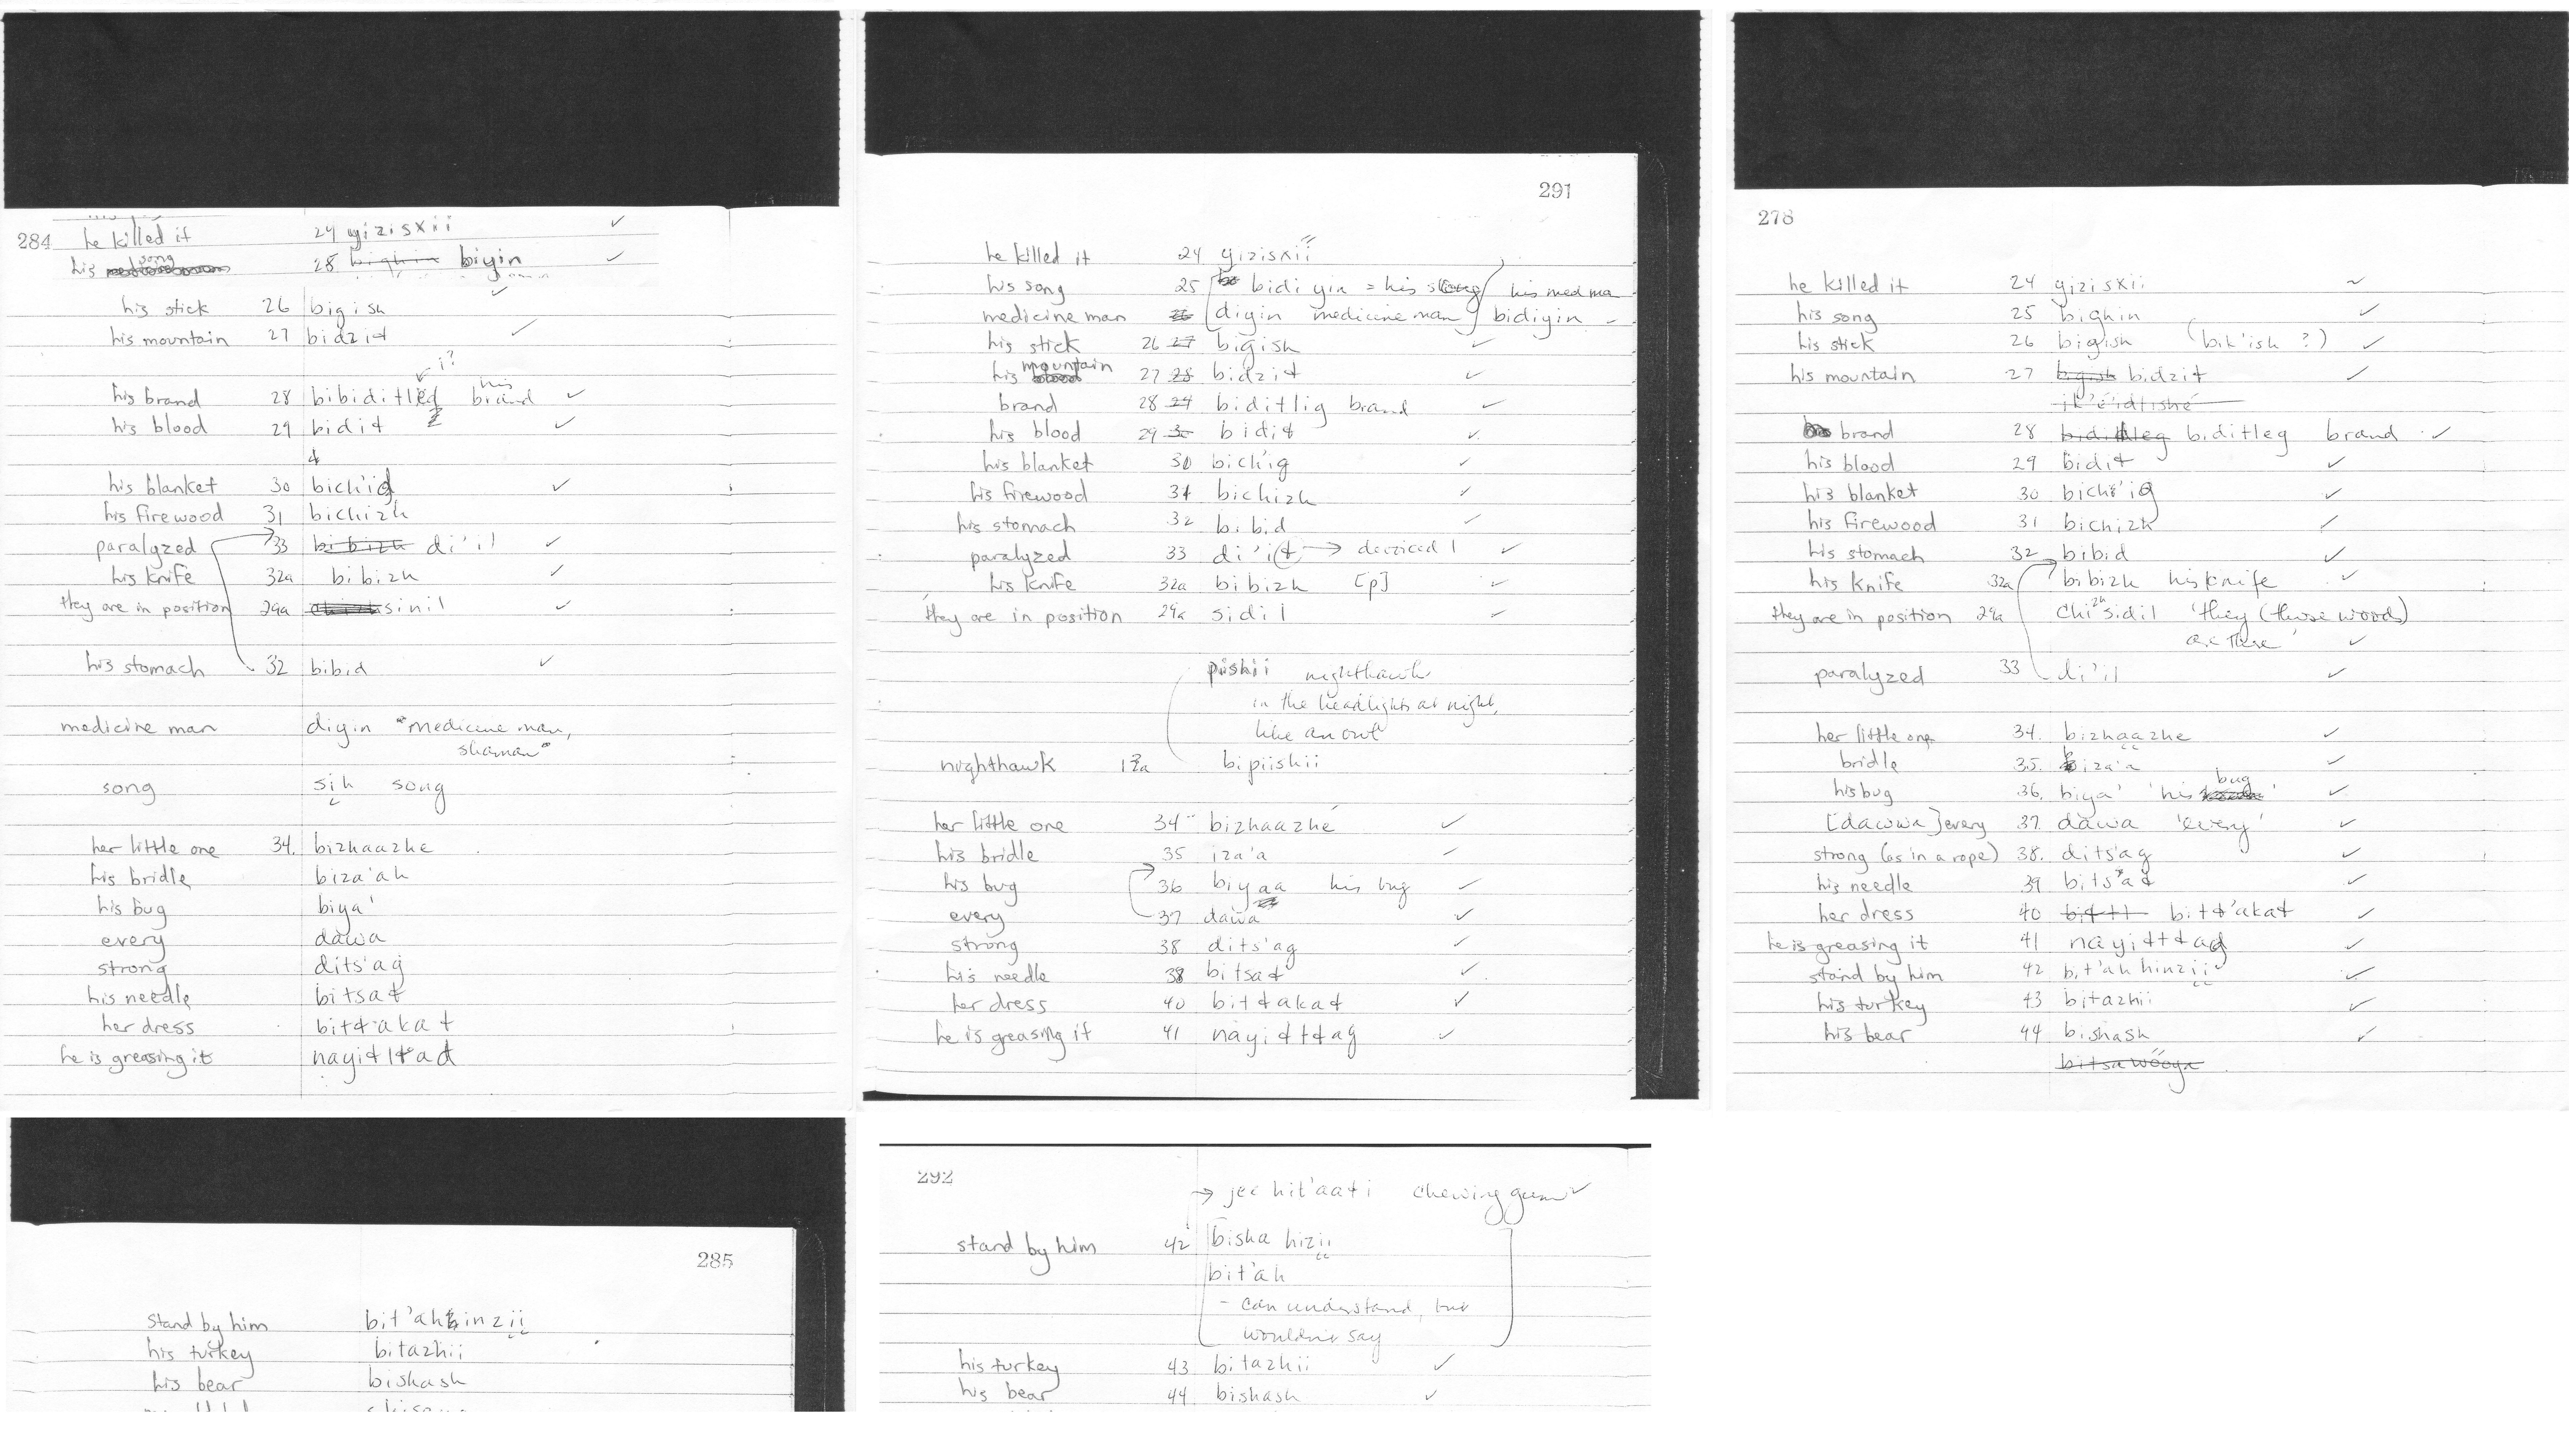 284 he killed it 24 yizisxii ✓
his song 28 bighin biyin ✓
his stick 26 bigish ✓
his mountain 27 bidził ✓
i?
his brand 28 bibiditłig his brand ✓
his blood 29 bidił ✓
ł
his blanket 30 bich'id ✓
his firewood 31 bichizh
paralyzed 33 bibizh di'il ✓
his knife 32a bibizh ✓
they are in position 29a sinil ✓
his stomach 32 bibid ✓
medicine man diyin "medicine man,
shaman"
song sih song
her little one 34. bizhaazhe
his bridle biza'ah
his bug biya'
every dawa
strong dits'ag
his needle bitsał
her dress bitł'akał
he is greasing it nayiłtład
291
he killed it 24 yizisxii
his song 25 bidiyin = his song / his med ma
medicine man 26 diyin medicine man bidiyin
his stick 26 27 bigish ✓
his mountain 27 28 bidził ✓
brand 28 29 biditlig brand ✓
his blood 29 30 bidił ✓
his blanket 30 bich'ig ✓
his firewood 31 bichizh ✓
his stomach 32 bibid ✓
paralyzed 33 di'ił → devoiced l ✓
his knife 32a bibizh [p] ✓
they are in position 29a sidil ✓
pishii nighthawk
in the headlights at night,
like an owl
nighthawk 12a bipiishii
her little one 34 bizhaazhé ✓
his bridle 35 iza'a ✓
his bug 36 biyaa his bug ✓
every 37 dawa ✓
strong 38 dits'ag ✓
his needle 38 bitsał ✓
her dress 40 bitłakał ✓
he is greasing it 41 nayiłtłag ✓
278
he killed it 24 yizisxii ✓
his song 25 bighin ✓
his stick 26 bigish (bik'ish ?) ✓
his mountain 27 bigish bidził ✓
ik'é'idlishé
brand 28 biditleg brand ✓
his blood 29 bidił ✓
his blanket 30 bich'ig ✓
his firewood 31 bichizh ✓
his stomach 32 bibid ✓
his knife 32a bibizh his knife ✓
they are in position 29a chizh sidil 'they (those woods)
are there' ✓
paralyzed 33 di'il ✓
her little one 34. bizhaazhe ✓
bridle 35. biza'a ✓
his bug 36. biya' 'his bug' ✓
[dawwa] every 37. dawa 'every' ✓
strong (as in a rope) 38. dits'ag ✓
his needle 39 bits'ał ✓
her dress 40 bitł'akał ✓
he is greasing it 41 nayiłtład ✓
stand by him 42 bit'ah hinzii ✓
his turkey 43 bitazhii ✓
his bear 44 bishash ✓
bitsa wóoya
285
stand by him bit'ah hinzii
his turkey bitazhii
his bear bishash
292
→ jee hit'aałi chewing gum ✓
stand by him 42 bisha hizii
bit'ah
- can understand, but
wouldn't say
his turkey 43 bitazhii ✓
his bear 44 bishash ✓